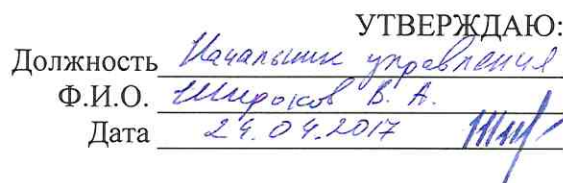 УТВЕРЖДАЮ:
Должность Начальник управления
Ф.И.О. Широков В. А.
Дата 24.04.2017